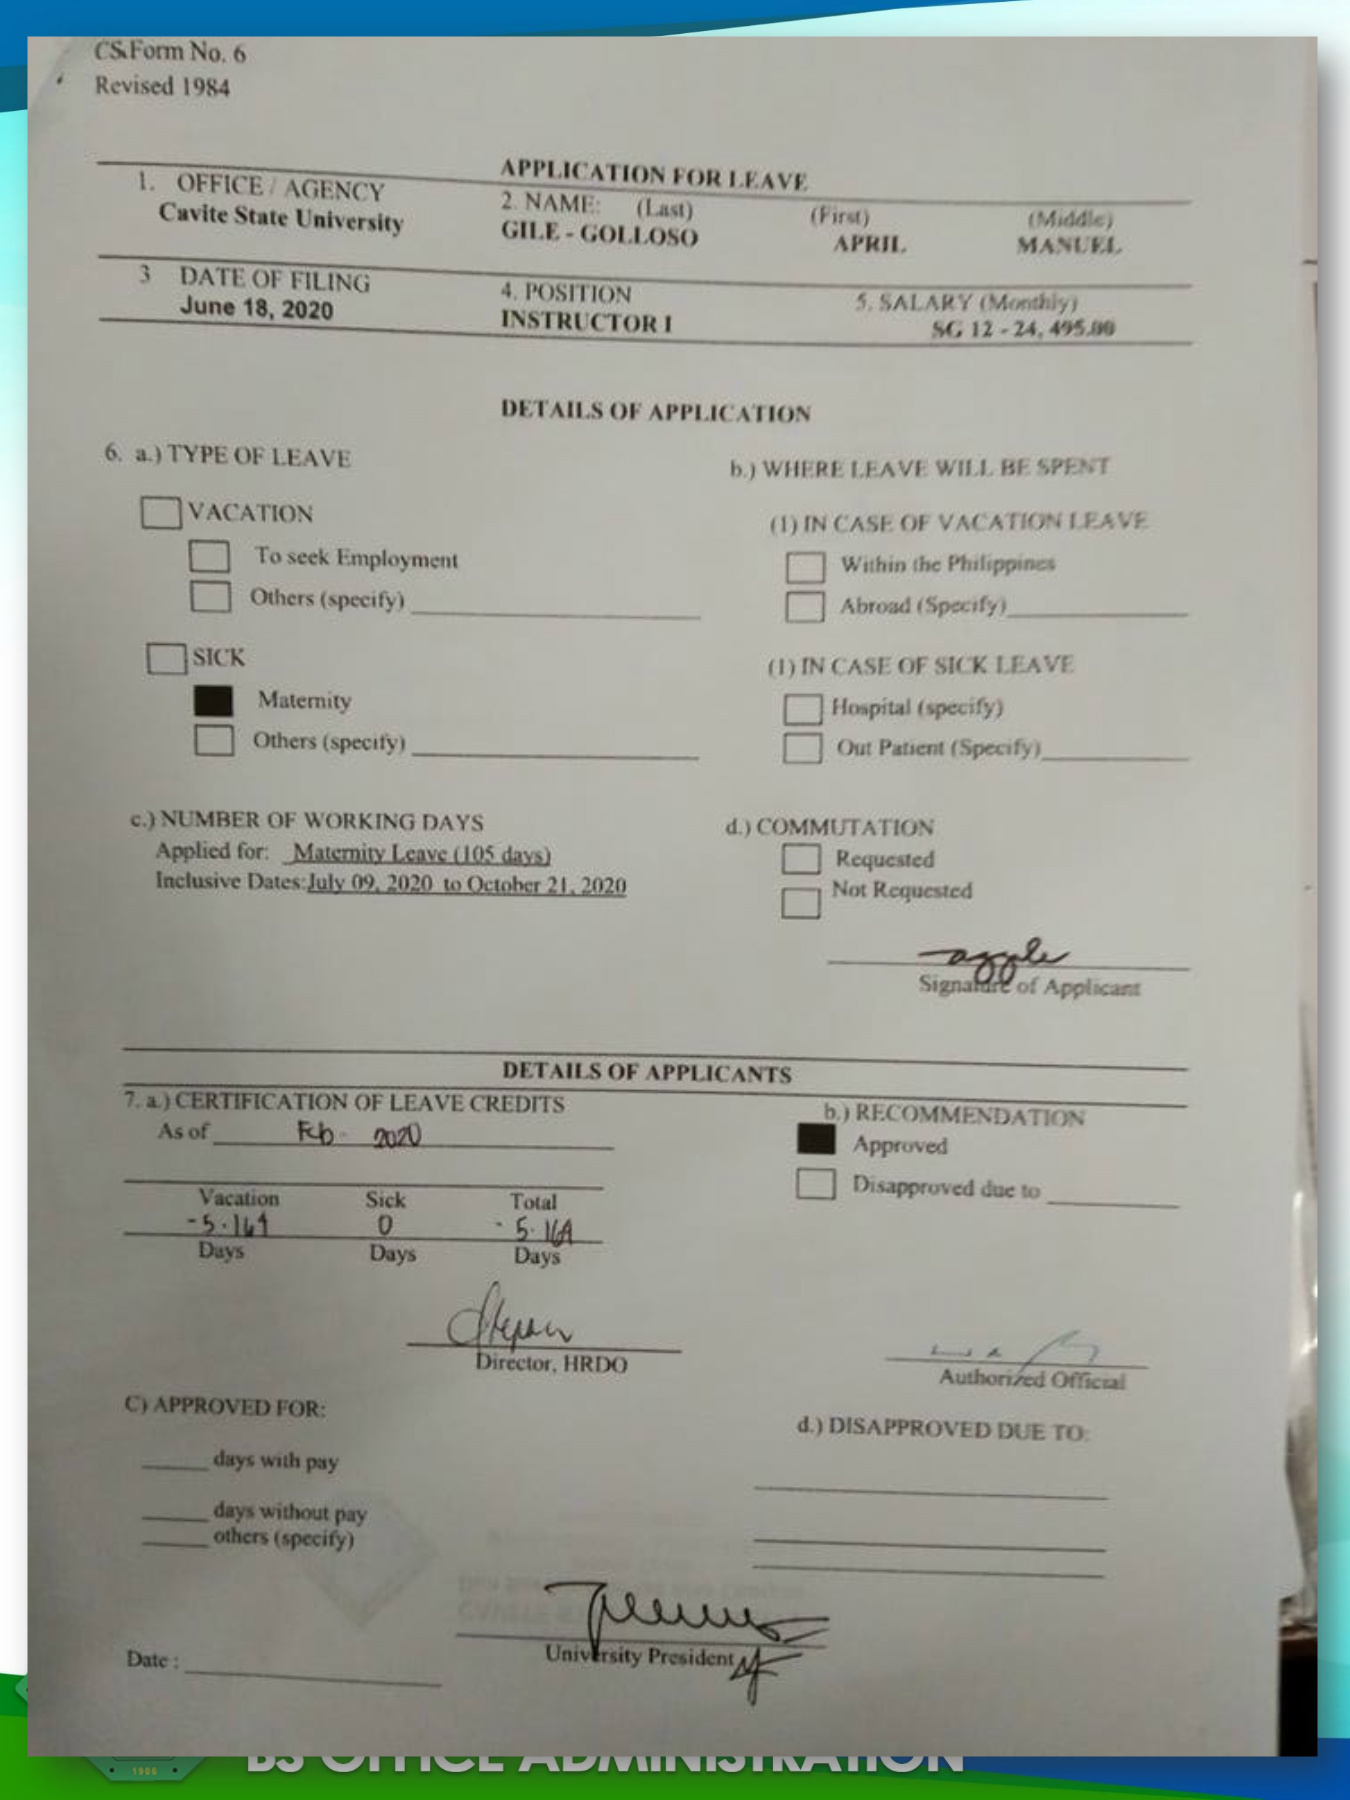 CS Form No. 6
Revised 1984
APPLICATION FOR LEAVE
1. OFFICE / AGENCY
Cavite State University
2. NAME: (Last) (First) (Middle)
GILE - GOLLOSO APRIL MANUEL
3 DATE OF FILING
June 18, 2020
4. POSITION
INSTRUCTOR I
5. SALARY (Monthly)
SG 12 - 24, 495.00
DETAILS OF APPLICATION
6. a.) TYPE OF LEAVE
VACATION
To seek Employment
Others (specify)
SICK
Maternity
Others (specify)
b.) WHERE LEAVE WILL BE SPENT
(1) IN CASE OF VACATION LEAVE
Within the Philippines
Abroad (Specify)
(1) IN CASE OF SICK LEAVE
Hospital (specify)
Out Patient (Specify)
c.) NUMBER OF WORKING DAYS
Applied for: Maternity Leave (105 days)
Inclusive Dates: July 09, 2020 to October 21, 2020
d.) COMMUTATION
Requested
Not Requested
Signature of Applicant
DETAILS OF APPLICANTS
7. a.) CERTIFICATION OF LEAVE CREDITS
As of Feb. 2020
Vacation Sick Total
-5.169 0 -5.169
Days Days Days
Director, HRDO
b.) RECOMMENDATION
Approved
Disapproved due to
Authorized Official
C) APPROVED FOR:
days with pay
days without pay
others (specify)
d.) DISAPPROVED DUE TO:
University President
Date :
1906
BS OFFICE ADMINISTRATION